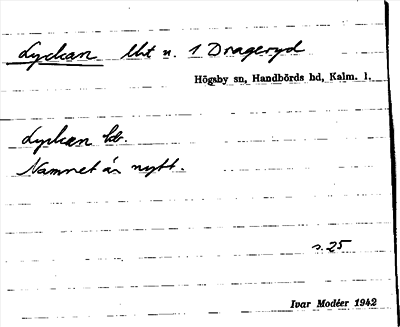 Lyckan lht u. 1 Drageryd
Högsby sn, Handbörds hd, Kalm. l.
Lyckan
Namnet är nytt.
s. 25
Ivar Modéer 1942